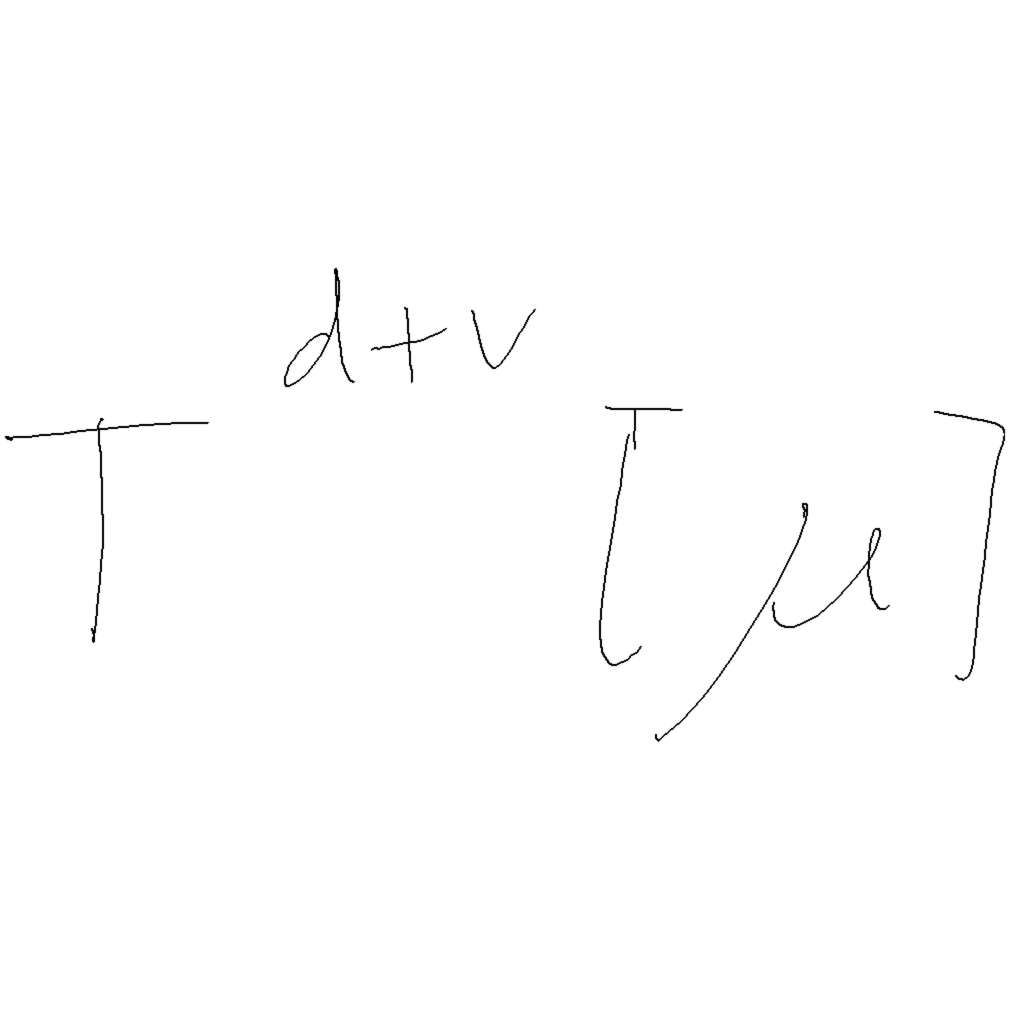 T^{d+v}[μ]